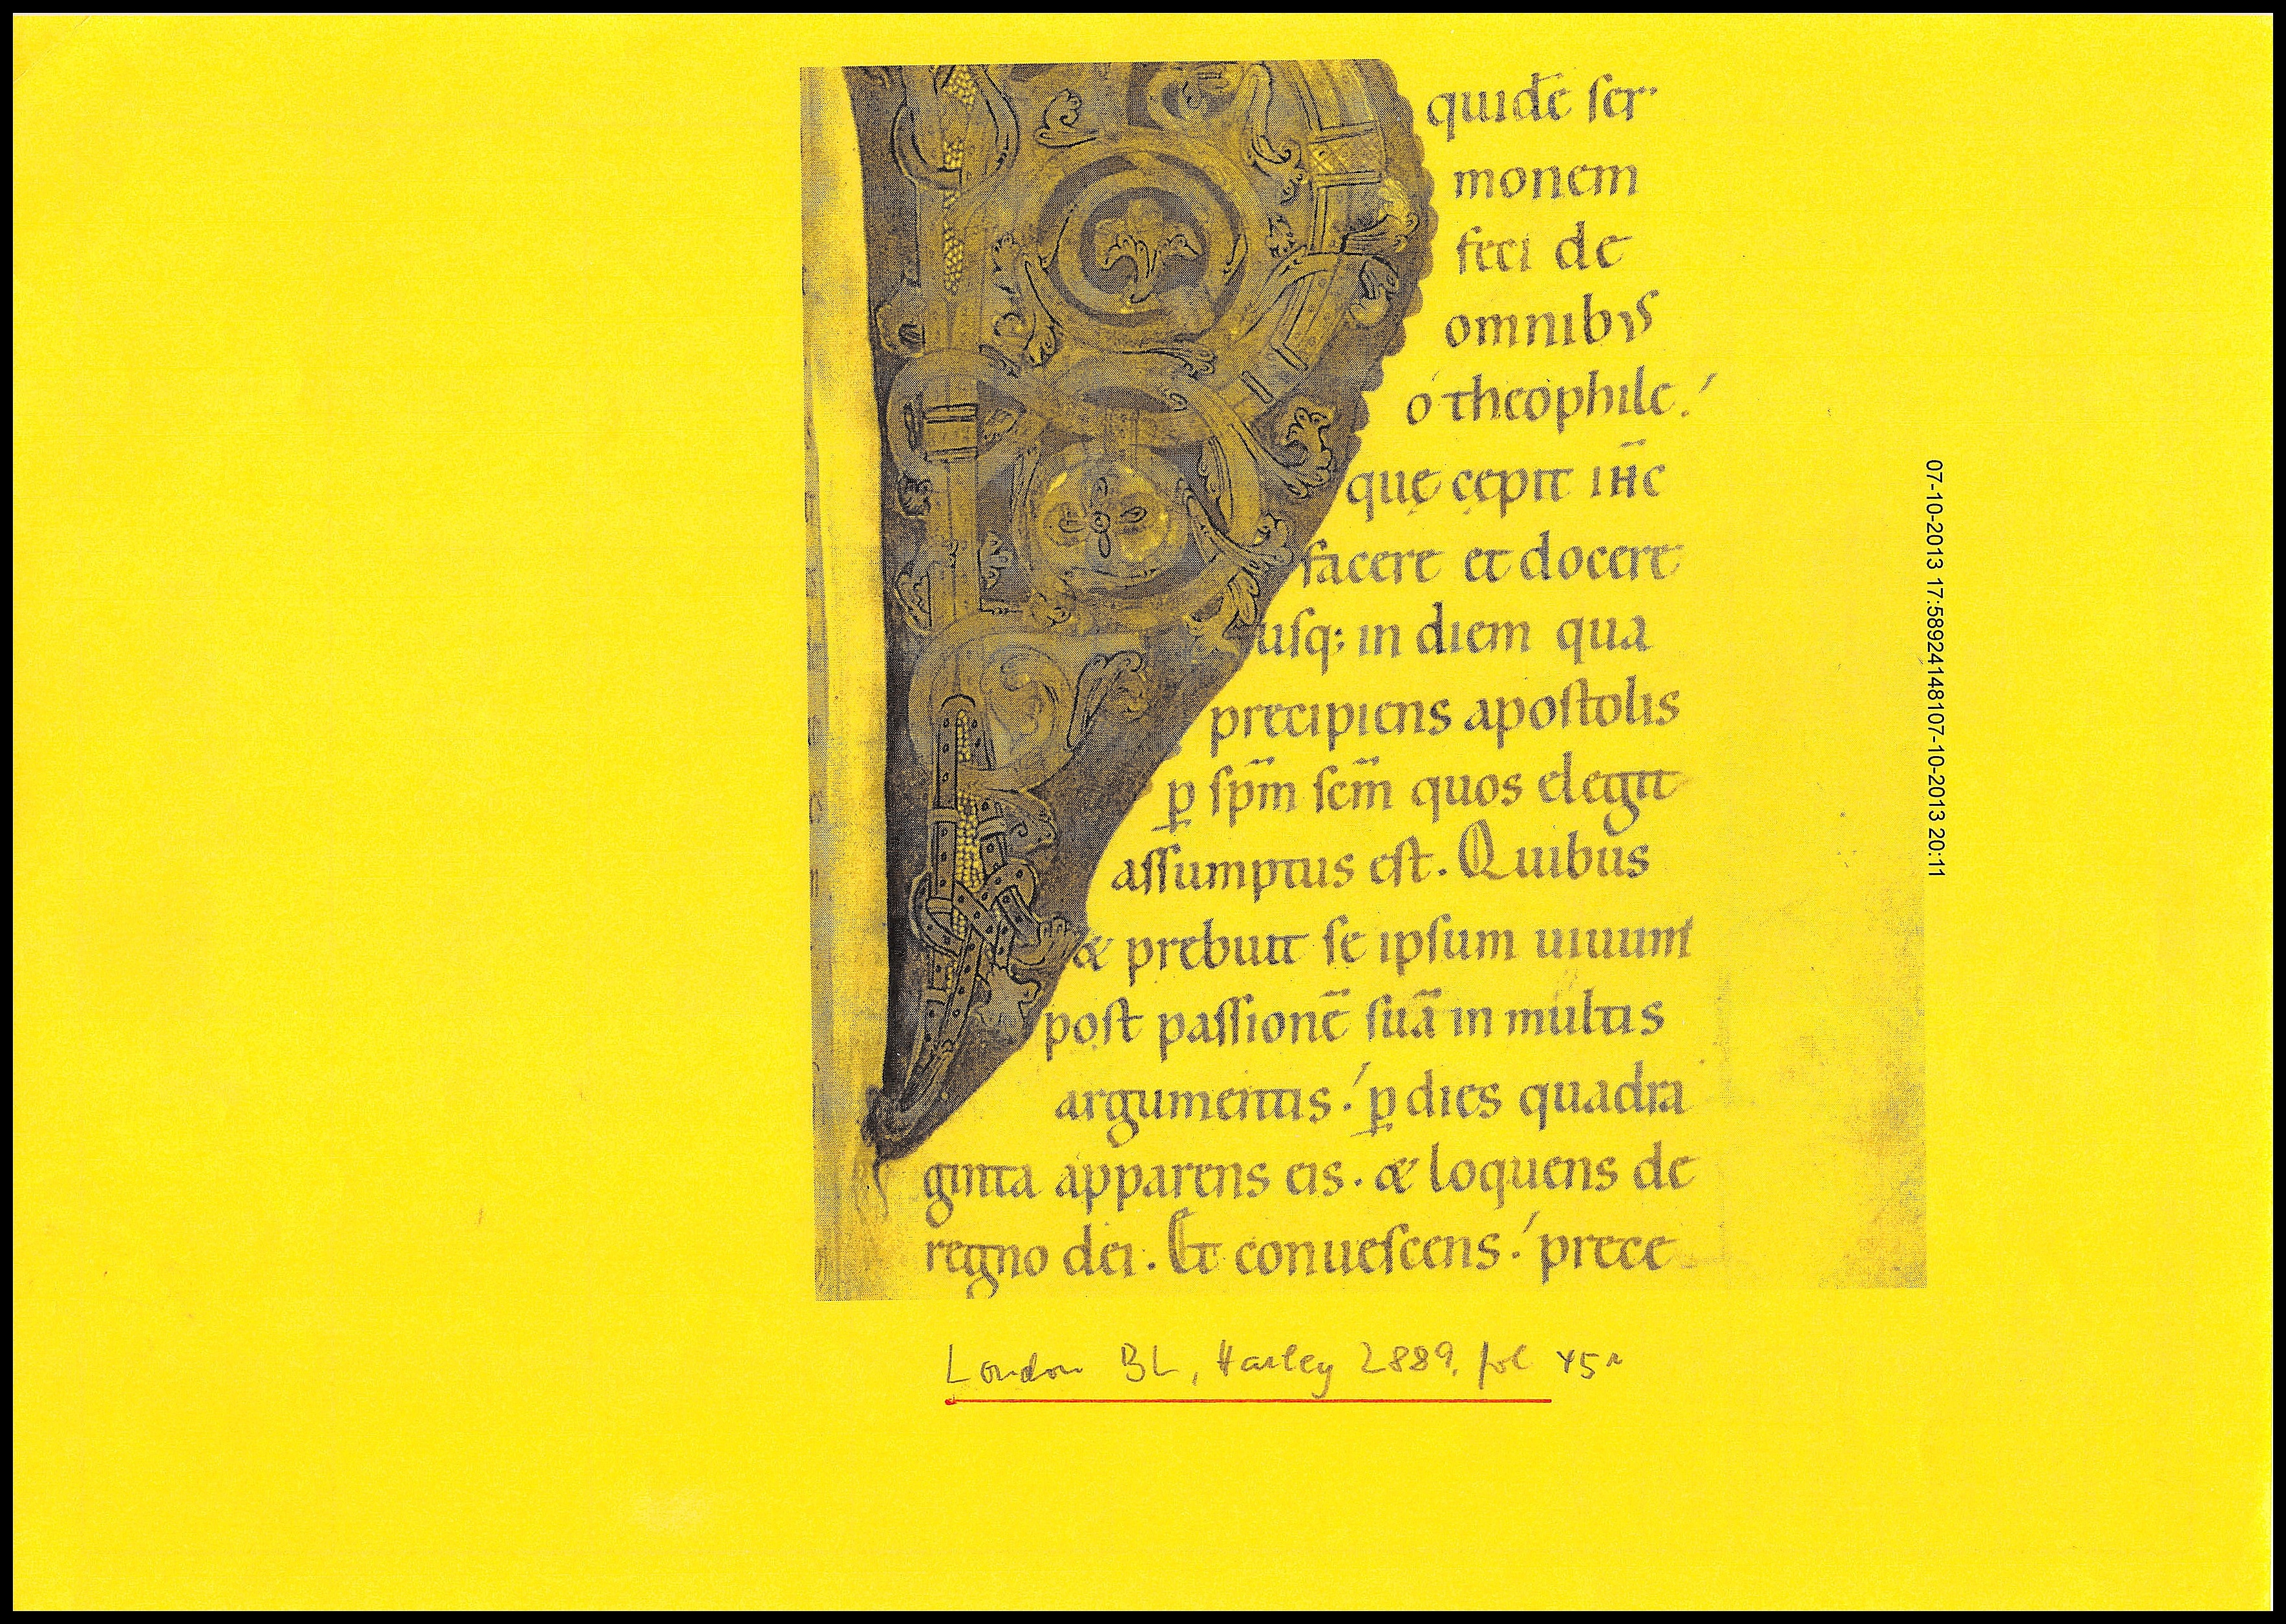 quidē ſer
monem
feci de
omnibꝰ
ó theophile.
quę cępit ih̄c
facere et docere
uſq; in diem qua
precipiens apoſtolis
ꝑ ſpm̄ ſcm̄ quos elegit
aſſumptus eſt. Quibus
& prebuit ſe ipſum uiuum
poſt paſſionē ſuā in multis
argumentis. ꝑ dies quadra
ginta apparens eis. & loquens de
regno dei. Et conueſcens. prece
London BL, Harley 2889, fol 45r
07-10-2013 17:5892414810 7-10-2013 20:11